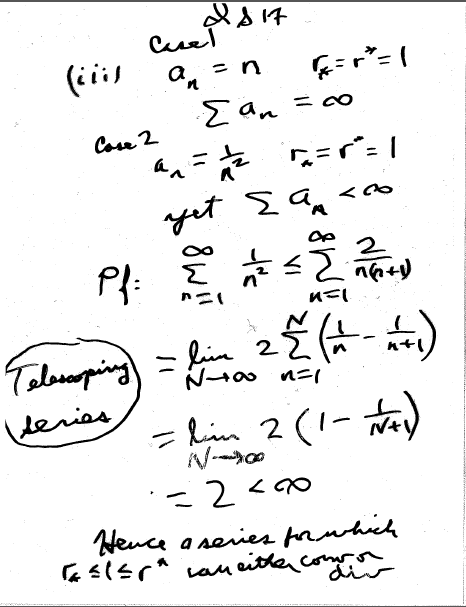 L S 17
Case 1
(iii) aₙ = n r_* = r^* = 1
∑ aₙ = ∞
Case 2
aₙ = 1/n² r_* = r^* = 1
yet ∑ aₙ < ∞
Pf: ∑_{n=1}^{∞} 1/n² ≤ ∑_{n=1}^{∞} 2/(n(n+1))
= lim_{N→∞} 2 ∑_{n=1}^{N} (1/n - 1/(n+1))
Telescoping
series
= lim_{N→∞} 2 (1 - 1/(N+1))
= 2 < ∞
Hence a series for which
r_* ≤ 1 ≤ r^* can either conv or
div